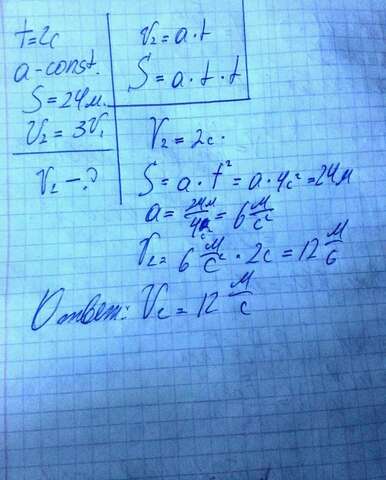 t=2c
a-const.
S=24м.
V₂=3V₁
V₂-?
V₂=a·t
S=a·t·t
V₂=2c·
S=a·t²=a·4c²=24м
a=24м/4c²=6м/c²
V₂=6м/c²·2c=12м/c
Ответ: V₂=12м/c